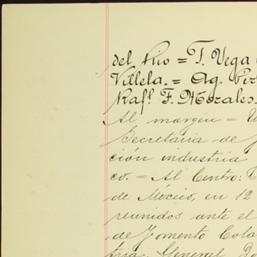 del Rio = T. Vega
Villela. = Ag. Pir
Rafl. F. Morales.
Al margen = U
Secretaría de
ción industria
co. = Al Centro:
de México, en 12
reunidos ante el
de Fomento Colo
tria General